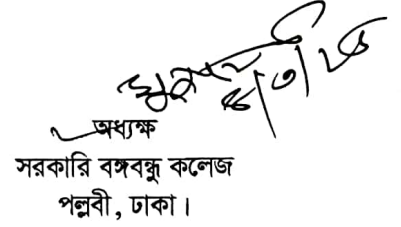 অধ্যক্ষ
সরকারি বঙ্গবন্ধু কলেজ
পল্লবী, ঢাকা।